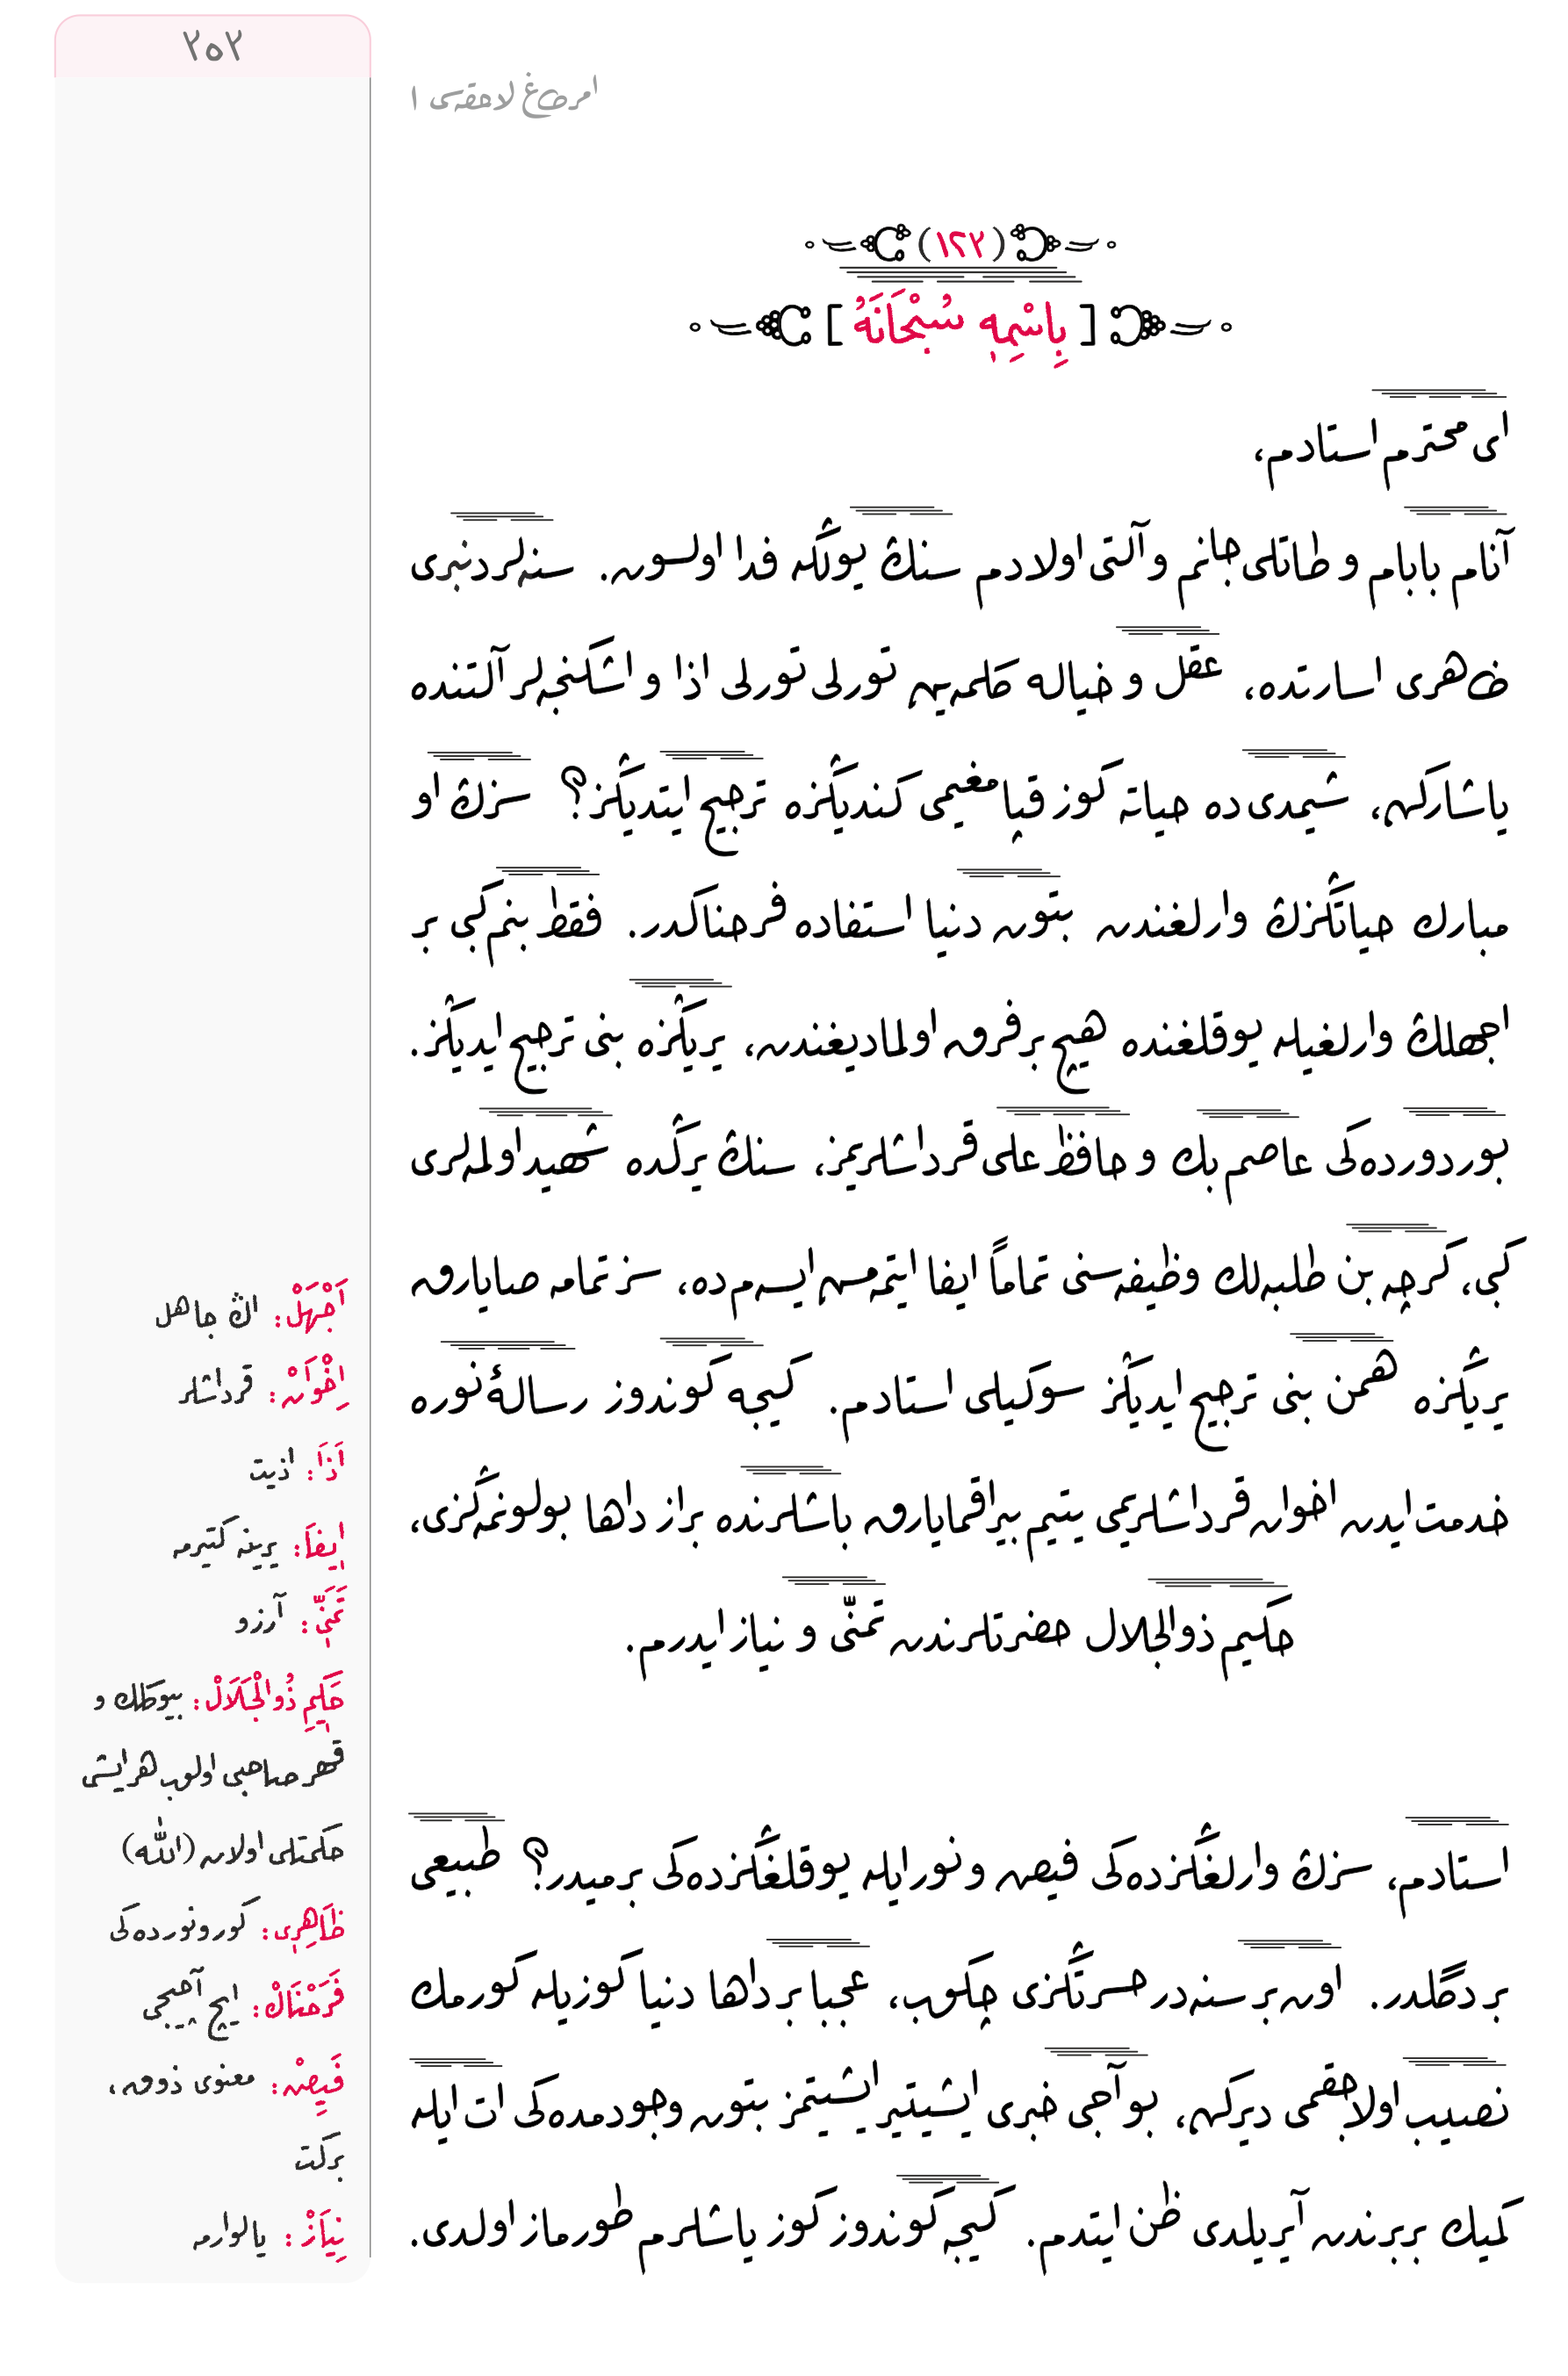 ٢٥٣
امرطاغ لاحقه‌سی ١
(١٢٣)
[بِاسْمِهٖ سُبْحَانَهُ]
ای محترم استادم،
آنام بابام و طاتلی جانم و آلتی اولادم سنڭ یولڭه فدا اولسون. سنه‌لردنبری
ظاهری اسارتده، عقل و خیاله گلمه‌ین تورلی تورلی اذا و اشكنجه‌لر آلتنده
یاشاركن، شیمدی ده حیاته گوز قپامغیمی كندیڭزه ترجیح ایتدیڭز؟ سزڭ او
مبارك حیاتڭزڭ وارلغندن بتون دنیا استفاده فرحناكدر. فقط بنم گبی بر
اجهلڭ وارلغیله یوقلغنده هیچ بر فرق اولمادیغندن، یریڭزه بنی ترجیح ایدیڭز.
بوردورده‌كی عاصم بك و حافظ علی قرداشلریمز، سنڭ یرڭده شهید اولمه‌لری
گبی، گرچه بن طلبه‌لك وظیفه‌سنی تماماً ایفا ایتمه‌مش ایسه‌م ده، سز تمامه صایارق
یریڭزه همن بنی ترجیح ایدیڭز سوگیلی استادم. گیجه گوندوز رسالهٔ نوره
خدمت ایدن اخوان قرداشلریمی یتیم بیراقمایارق باشلرنده براز داها بولونمه‌ڭزی،
حكیم ذوالجلال حضرتلرندن تمنّی و نیاز ایدرم.
استادم، سزڭ وارلغڭزده‌كی فیض و نور ایله یوقلغڭزده‌كی بر میدر؟ طبیعی
بر دگلدر. اون بر سنه‌در حسرتڭزی چكوب، عجبا بر داها دنیا گوزیله گورمك
نصیب اولاجقمی دیركن، بو آجی خبری ایشیتیر ایشیتمز بتون وجودمده‌كی ات ایله
كمیك بربرندن آیریلدی ظن ایتدم. گیجه گوندوز گوز یاشلرم طورماز اولدی.
اَجْهَلْ: اڭ جاهل
اِخْوَانْ: قرداشلر
اَذَا: اذیت
اٖيفَا: یرینه گتیرمه
تَمَنّٖي: آرزو
حَكٖيمِ ذُوالْجَلَالْ: بیوكلك و
قهر صاحبی اولوب هر ایشی
حكمتلی اولان (اللّٰه)
ظَاهِرٖي: گورونورده‌كی
فَرَحْنَاكْ: ایچ آچیجی
فَيِضْ: معنوی ذوق،
بركت
نِيَازْ: یالوارمه